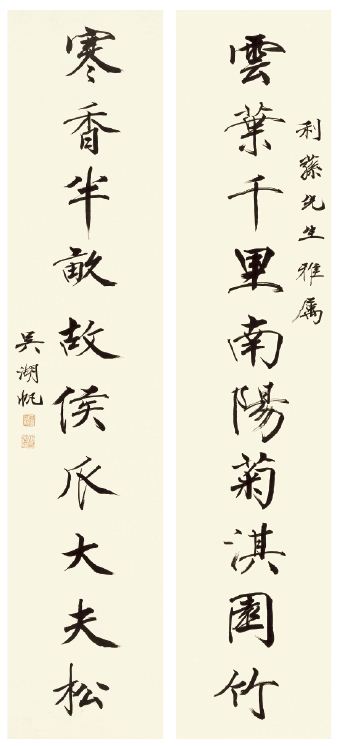 利蓀先生雅屬
雲葉千里南陽菊淇園竹
寒香半畝故侯瓜大夫松
吳湖帆